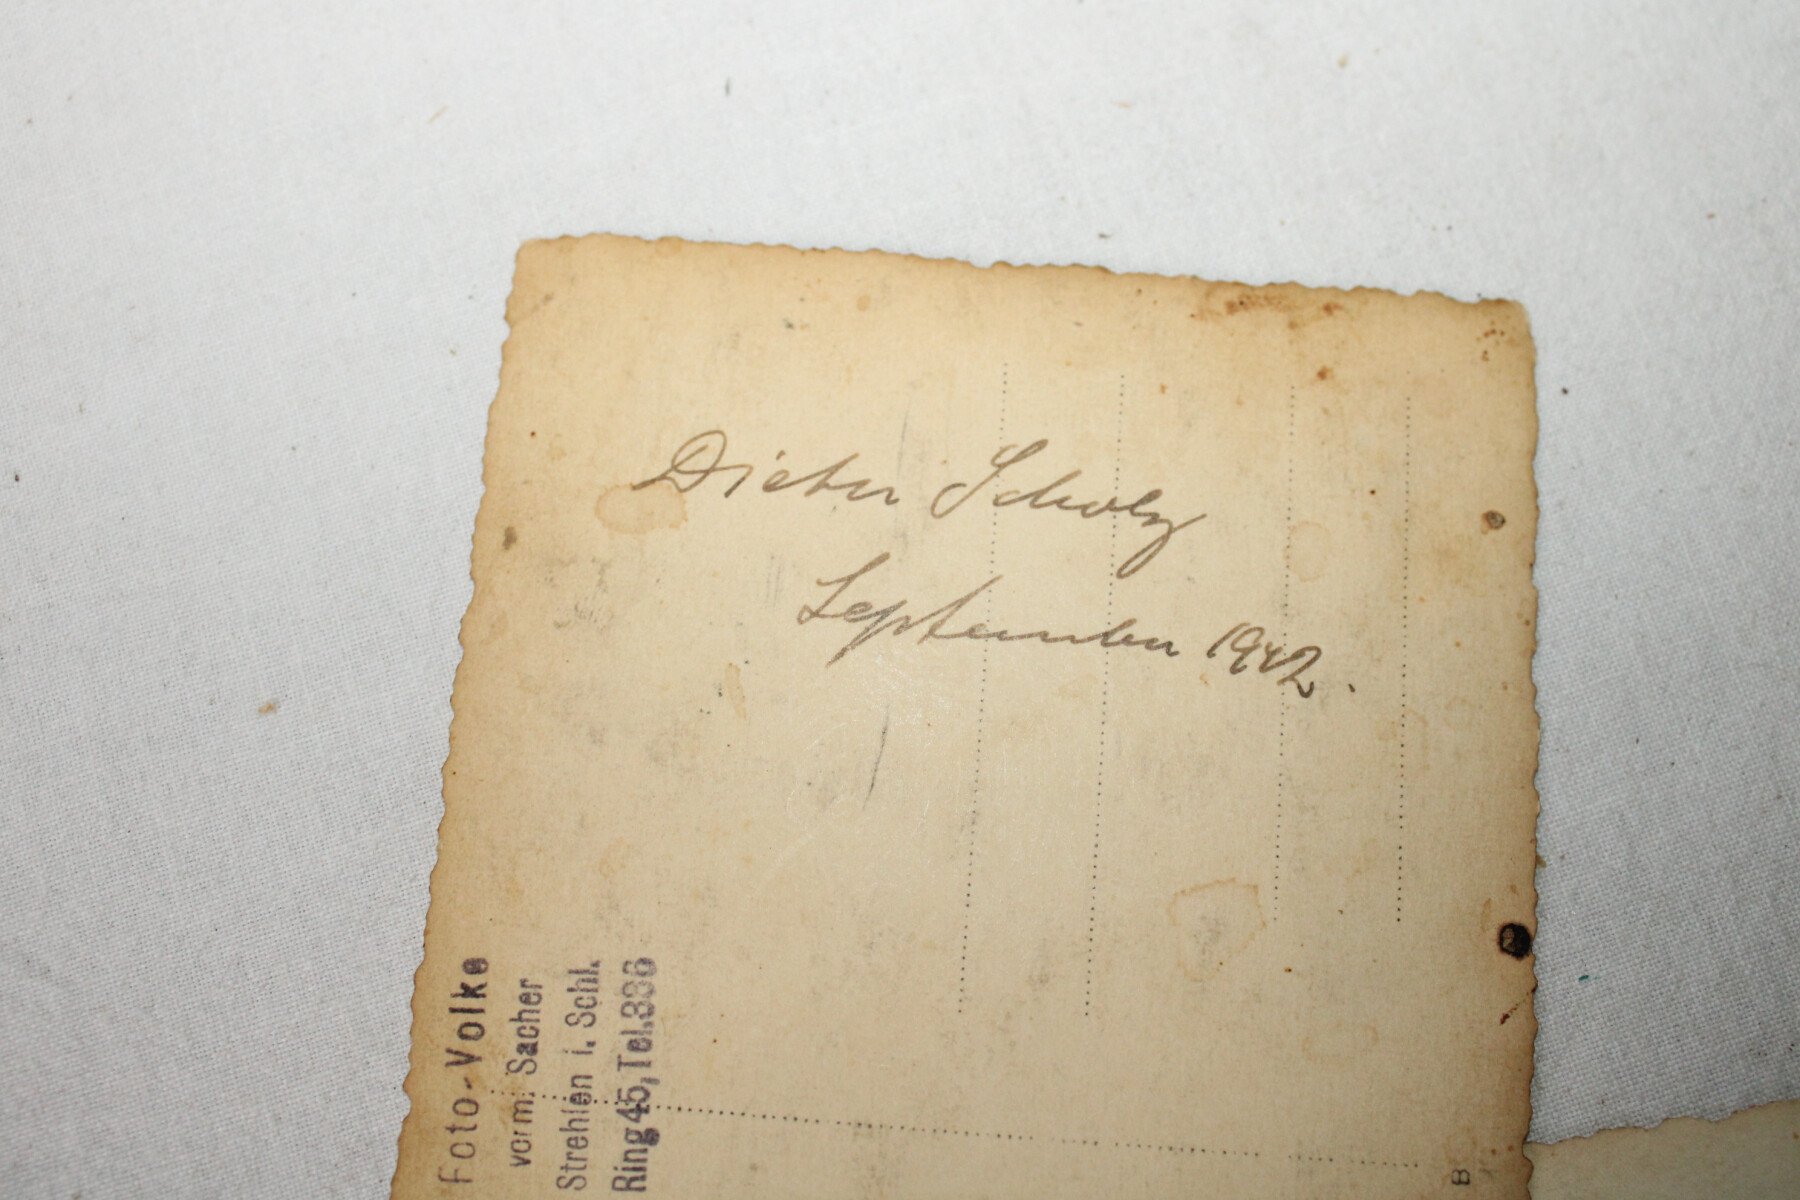 Dieter Scholz
September 1942.
Foto-Volke
vorm. Sacher
Strehlen i. Schl.
Ring 45, Tel. 336
B